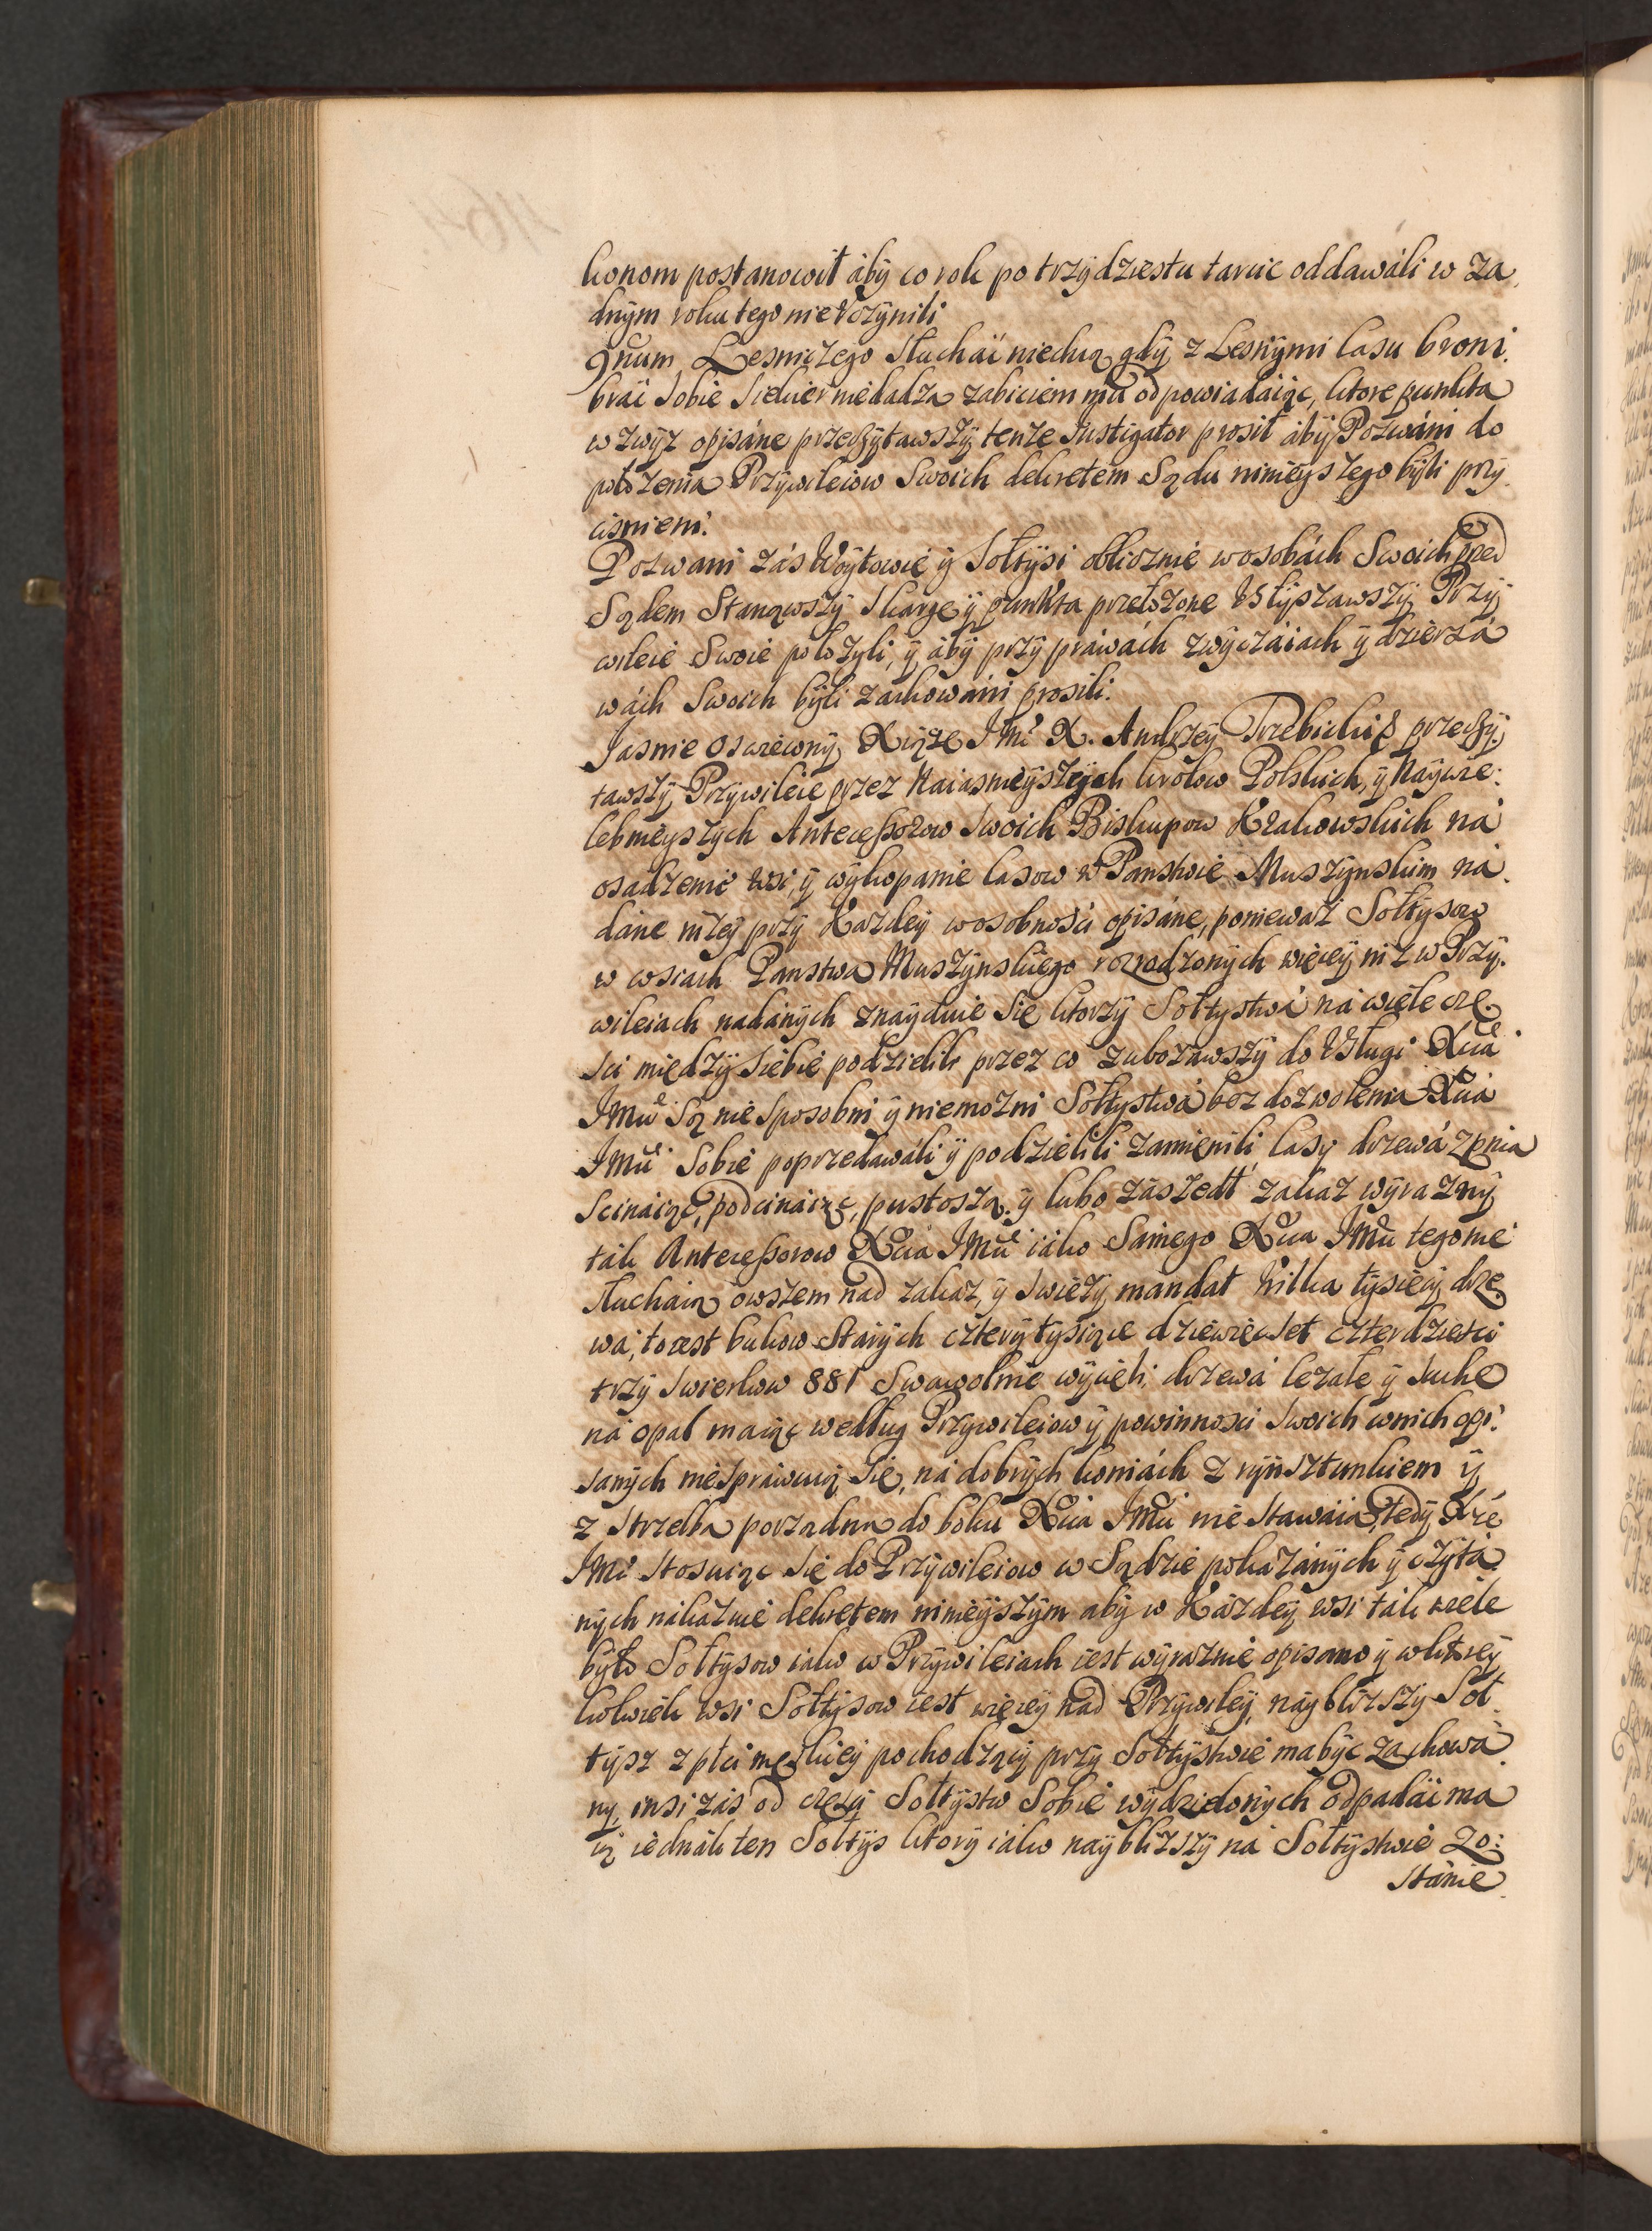 konom postanowił áby co rok po trzydziestu tarcic oddawáli w ża
dnym roku tego nie vczynili
9num Lesniczego słuchać niechcą gdy z Lesnymi lasu broni.
bráć sobie siekier niedadzą zabiciem mu odpowiadáiąc, ktore punkta
wzwyż opisáne przeczytawszy tenże Instigator prosił áby Pozwáni do
położenia Przywileiow Swoich dekretem Sądu ninieyszego byli przy
ciśnieni.
Pozwani záś Woytowie y Sołtysi oblicznie w osobách Swoich przed
Sądem Stanąwszy skargę y punkta przełożone Vsłyszawszy Przy
wileie Swoie położyli, y áby przy práwách zwyczáiách y dzierżá
wách Swoich byli zachowáni prosili.
Jasnie Oswiecony Xiąże JMć X. Andrzey Trzebicki przeczy,
tawszy Przywileie przez Naiasnieyszych krolow Polskich, y Naywie:
lebnieyszych Antecessorow swoich Biskupow Krakowskich ná
osadzenie wsi, y wykopanie lasow w Panstwie Muszynskim ná
dáne niżey przy Każdey w osobnośći opisáne, ponieważ Sołtysow
w wsiach Panstwa Muszynskiego rozrodzonych więcey niż w Przy.
wileiach nadánych znayduie się ktorzy Sołtystwá ná wiele czę
sci między siebie podzielili przez co zubożawszy do Vsługi Xcia
JMci Są nie sposobni y niemożni Sołtystwá bez dozwolenia Xcia
JMci Sobie poprzedawáli y podzielili zamienili lasy drzewá z pnia
scináiąc, podcináiąc, pustoszą. y lubo zászedł zakaz wyrazny
ták Antecessorow Xcia JMci iáko Sámego Xcia JMci tego nie
słuchaią owszem nad zakaz, y swieży mandat kilka tysięcy drze
wa, to iest bukow Stárych cztery tysiące dziewięcset czterdziesci
trzy swierkow 881 Swawolnie wycięli, drzewá leżałe y suche
ná opał maiąc według Przywileiow y powinnosci swoich w nich opi.
sanych niespráwuią się, ná dobrych koniách z rynsztunkiem y
z strzelbą porządną do boku Xcia JMci nie stawáią, tedy Xże
JMć stosuiąc się do Przywileiow w Sądzie pokazánych y czytá
nych nakázuie dekretem ninieyszym aby w Káżdey wsi ták wiele
było Sołtysow iáko w Przywileiach iest wyraznie opisano y w ktorey
kolwiek wsi Sołtysow iest więcey nad Przywiley, náybliższy Soł.
tysz z płci męskiey pochodzący przy Sołtystwie ma być zachowá
ny, insi záś od częsci Sołtystw Sobie wydzielonych odpadáć má
ią iednák ten Sołtys ktory iáko naybliższy ná Sołtystwie zo:
stánie